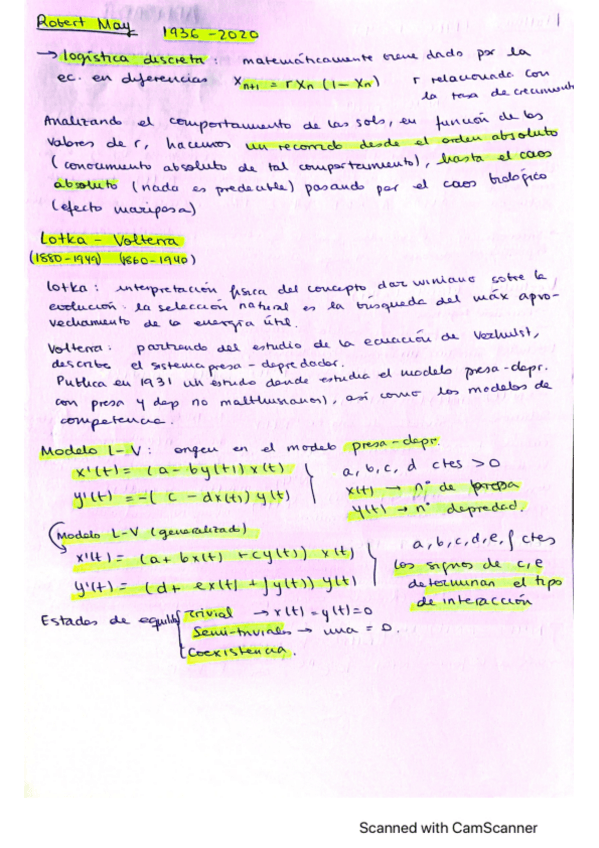 Robert May 1936-2020
→ logística discreta: matemáticamente viene dado por la
ec. en diferencias Xn+1 = r Xn (1-Xn) r relacionada con
la tasa de crecimiento
Analizando el comportamiento de las sols, en función de los
valores de r, hacemos un recorrido desde el orden absoluto
(conocimiento absoluto de tal comportamiento), hasta el caos
absoluto (nada es predecible) pasando por el caos biológico
(efecto mariposa)
Lotka - Volterra
(1880-1949) (1860-1940)
Lotka: interpretación física del concepto darwiniano sobre la
evolución: la selección natural es la búsqueda del máx apro-
vechamiento de la energía útil.
Volterra: partiendo del estudio de la ecuación de Verhulst,
describe el sistema presa-depredador.
Publica en 1931 un estudio donde estudia el modelo presa-depr.
con presa y dep no malthusianos), así como los modelos de
competencia.
Modelo L-V: origen en el modelo presa-depr.
x'(t) = (a - by(t)) x(t) } a, b, c, d ctes > 0
y'(t) = -(c - dx(t)) y(t) x(t) → nº de presa
y(t) → nº depredad.
Modelo L-V (generalizado)
x'(t) = (a + bx(t) + cy(t)) x(t) } a, b, c, d, e, f ctes
y'(t) = (d + ex(t) + fy(t)) y(t) los signos de c, e
determinan el tipo
de interacción
Estados de equilib { trivial → x(t) = y(t) = 0
Semi-triviales → una = 0.
Coexistencia.
Scanned with CamScanner